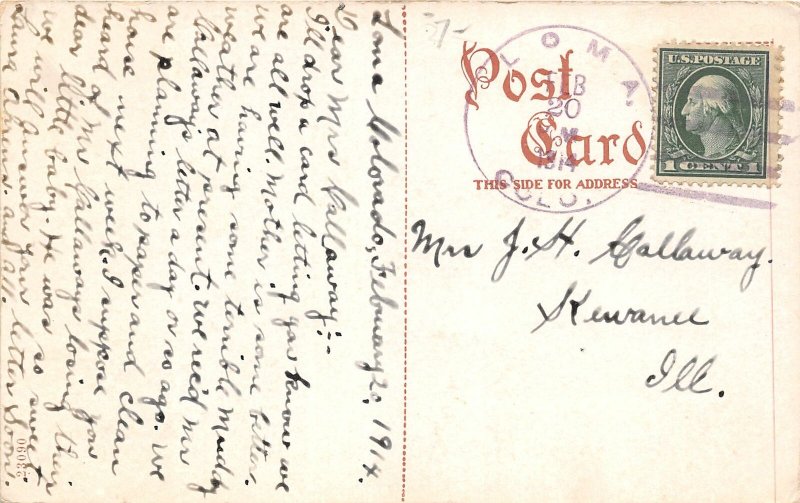 Loma Colorado, February 20, 1914.
Dear Mrs Callaway:-
I'll drop a card letting you know we
are all well. Mother is some better.
we are having some terrible Muddy
weather at present. we rec'd Mr
Callaways letter a day or so ago. we
are planning to paper and clean
house next week. I suppose you
heard of Mr Callaways losing their
dear little baby. He was so sweet
we will answer your letter soon.
and all.
33060
-7-
Post
Card
THIS SIDE FOR ADDRESS
LOMA,
FEB
20
M
1914
COLO.
U.S. POSTAGE
1 CENT 1
Mrs J. H. Callaway.
Kewanee
Ill.